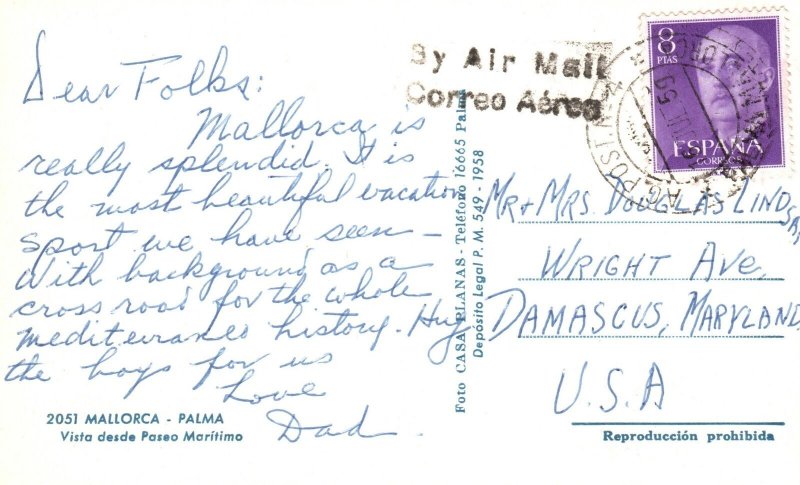 Dear Folks:
Mallorca is
really splendid. It is
the most beautiful vacation
sport we have seen –
With background as a
cross road for the whole
mediterraneo history. Hug
the boys for us
Love
Dad.
2051 MALLORCA - PALMA
Vista desde Paseo Marítimo
Foto CASA PLANAS - Teléfono 16665 Palma
Depósito Legal P. M. 549 - 1958
By Air Mail
Correo Aéreo
8
PTAS
ESPAÑA
CORREOS
MR + MRS. DOUGLAS LINDSAY
WRIGHT AVE,
DAMASCUS, MARYLAND
U.S.A
Reproducción prohibida